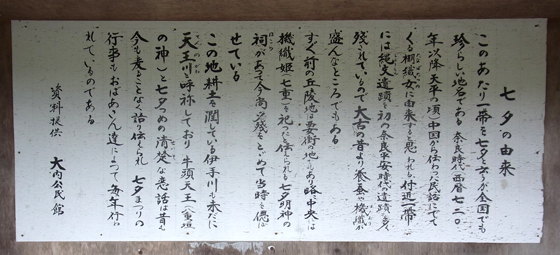 七夕の由来
このあたり一帯を七夕と云うが全国でも
珍らしい地名である 奈良時代(西暦七二〇
年以降天平の頃)中国から伝わった民話にでて
くる棚織女に由来すると思われる 付近一帯
には縄文遺蹟を初め奈良平安時代の遺蹟が多く
残されているので大古の昔より養蚕や機織が
盛んなところでもある
すぐ前の丘陵地は要衝の地でもあり 略中央に
機織姫(七重)を祀ったと伝えられる七夕明神の
祠があって今尚名残をとどめて当時を偲ば
せている
この地耕土を潤している伊手川も永だに
天王川と呼称しており 牛頭天王(重垣
の神)と七夕つめの清楚な悲話は昔も
今も変ることなく語り伝えられ 七夕まつりの
行事もおばあさん達によって毎年行わ
れているのである
資料提供 大内公民館